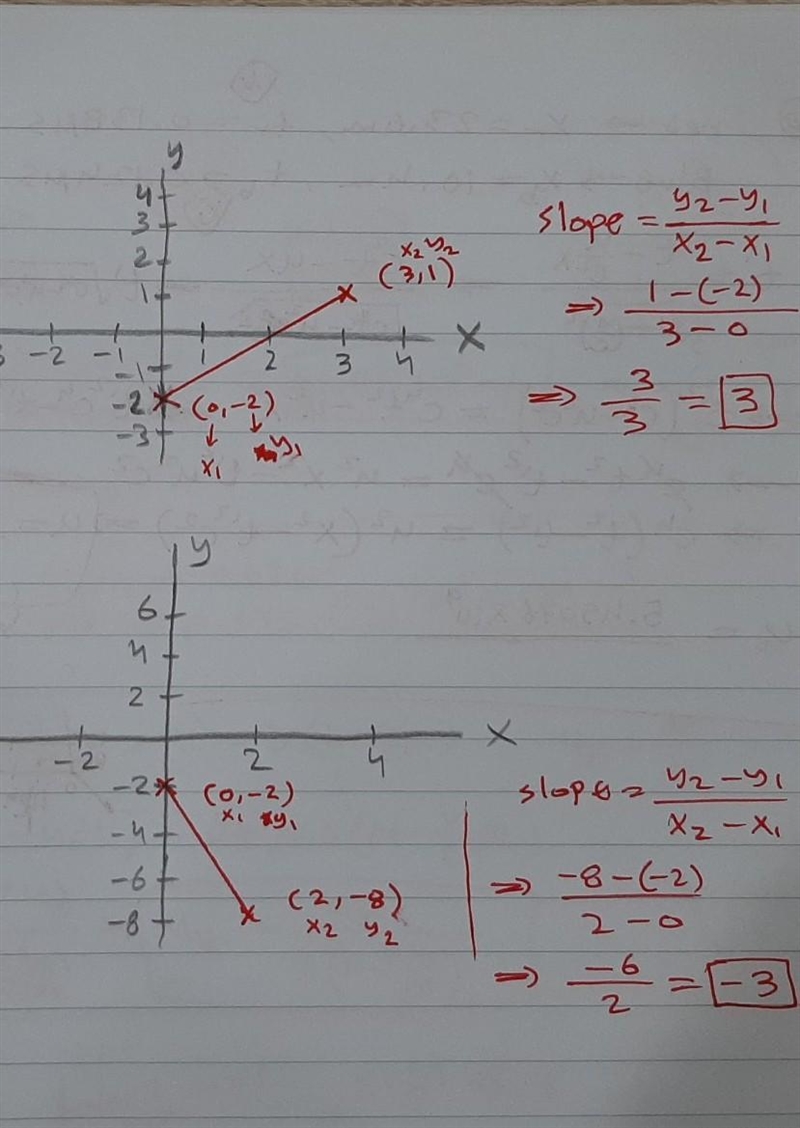 y
4
3
2
1
-2 -1 1 2 3 4 x
-1
-2
-3
x2 y2
(3,1)
(0,-2)
x1 y1
slope = y2-y1 / x2-x1
⇒ 1-(-2) / 3-0
⇒ 3/3 = 3
y
6
4
2
-2 2 4 x
-2
-4
-6
-8
(0,-2)
x1 y1
(2,-8)
x2 y2
slope = y2-y1 / x2-x1
⇒ -8-(-2) / 2-0
⇒ -6/2 = -3